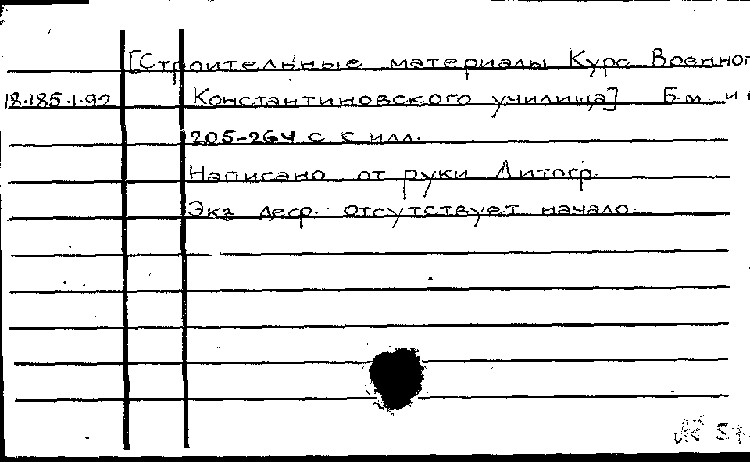 [Строительные материалы Курс Военног
18.185.1.92 Константиновского училища] Б м и
205-264 с с илл.
Написано от руки Литогр.
Экз деф. отсутствует начало